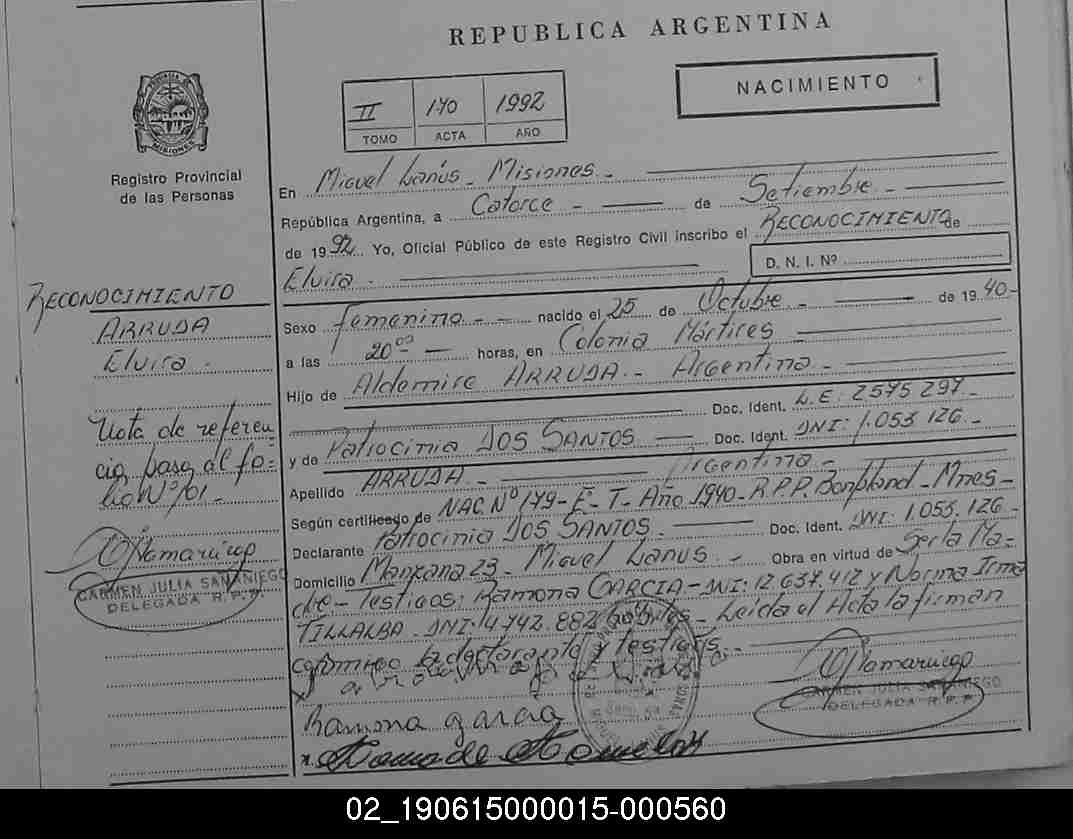 REPUBLICA ARGENTINA
PROVINCIA DE MISIONES
Registro Provincial
de las Personas
II 170 1992
TOMO ACTA AÑO
NACIMIENTO
En Miguel Lanús - Misiones -
República Argentina, a Catorce - de Setiembre -
de 1992 Yo, Oficial Público de este Registro Civil inscribo el RECONOCIMIENTO de
Elvira - D. N. I. Nº
Sexo femenino - - nacido el 25 de Octubre - de 1940 -
a las 20 00 - horas, en Colonia Mártires
Hijo de Aldemiro ARRUDA - Argentino -
Doc. Ident. L.E: 2575297 -
y de Patrocinia DOS SANTOS Doc. Ident. DNI: 1.053 126 -
Apellido ARRUDA - Argentina -
Según certificado de NAC. Nº 179 - E - T - Año 1940 - R.P.P. Bonpland - Mnes -
Declarante Patrocinia DOS SANTOS Doc. Ident. DNI: 1.053.126 -
Domicilio Manzana 23 - Miguel Lanus - Obra en virtud de Ser la Ma-
dre - Testigos: Ramona GARCIA - DNI: 12.637.412 y Norma Irma
VILLALBA DNI: 14.742.882 - Leida el Acta la firman
conmigo la declarante y testigos -
Ramona garcia
CARMEN JULIA SAMANIEGO
DELEGADA R.P.P
RECONOCIMIENTO
ARRUDA
Elvira -
Nota de referen
cia, pasa al fo-
lio Nº 101 -
CARMEN JULIA SAMANIEGO
DELEGADA R.P.P
02_190615000015-000560